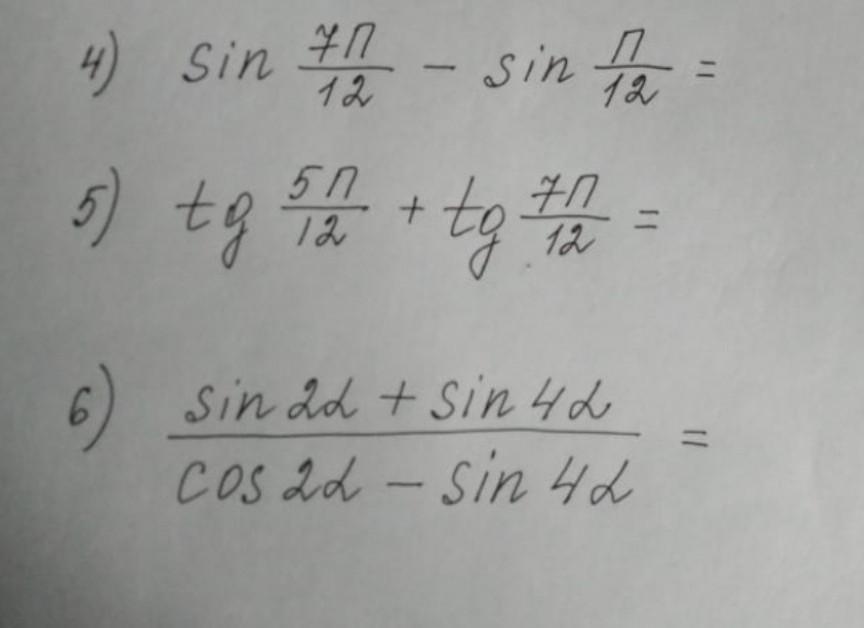 4) sin 7П/12 - sin П/12 =
5) tg 5П/12 + tg 7П/12 =
6) (sin 2α + sin 4α)/(cos 2α - sin 4α) =